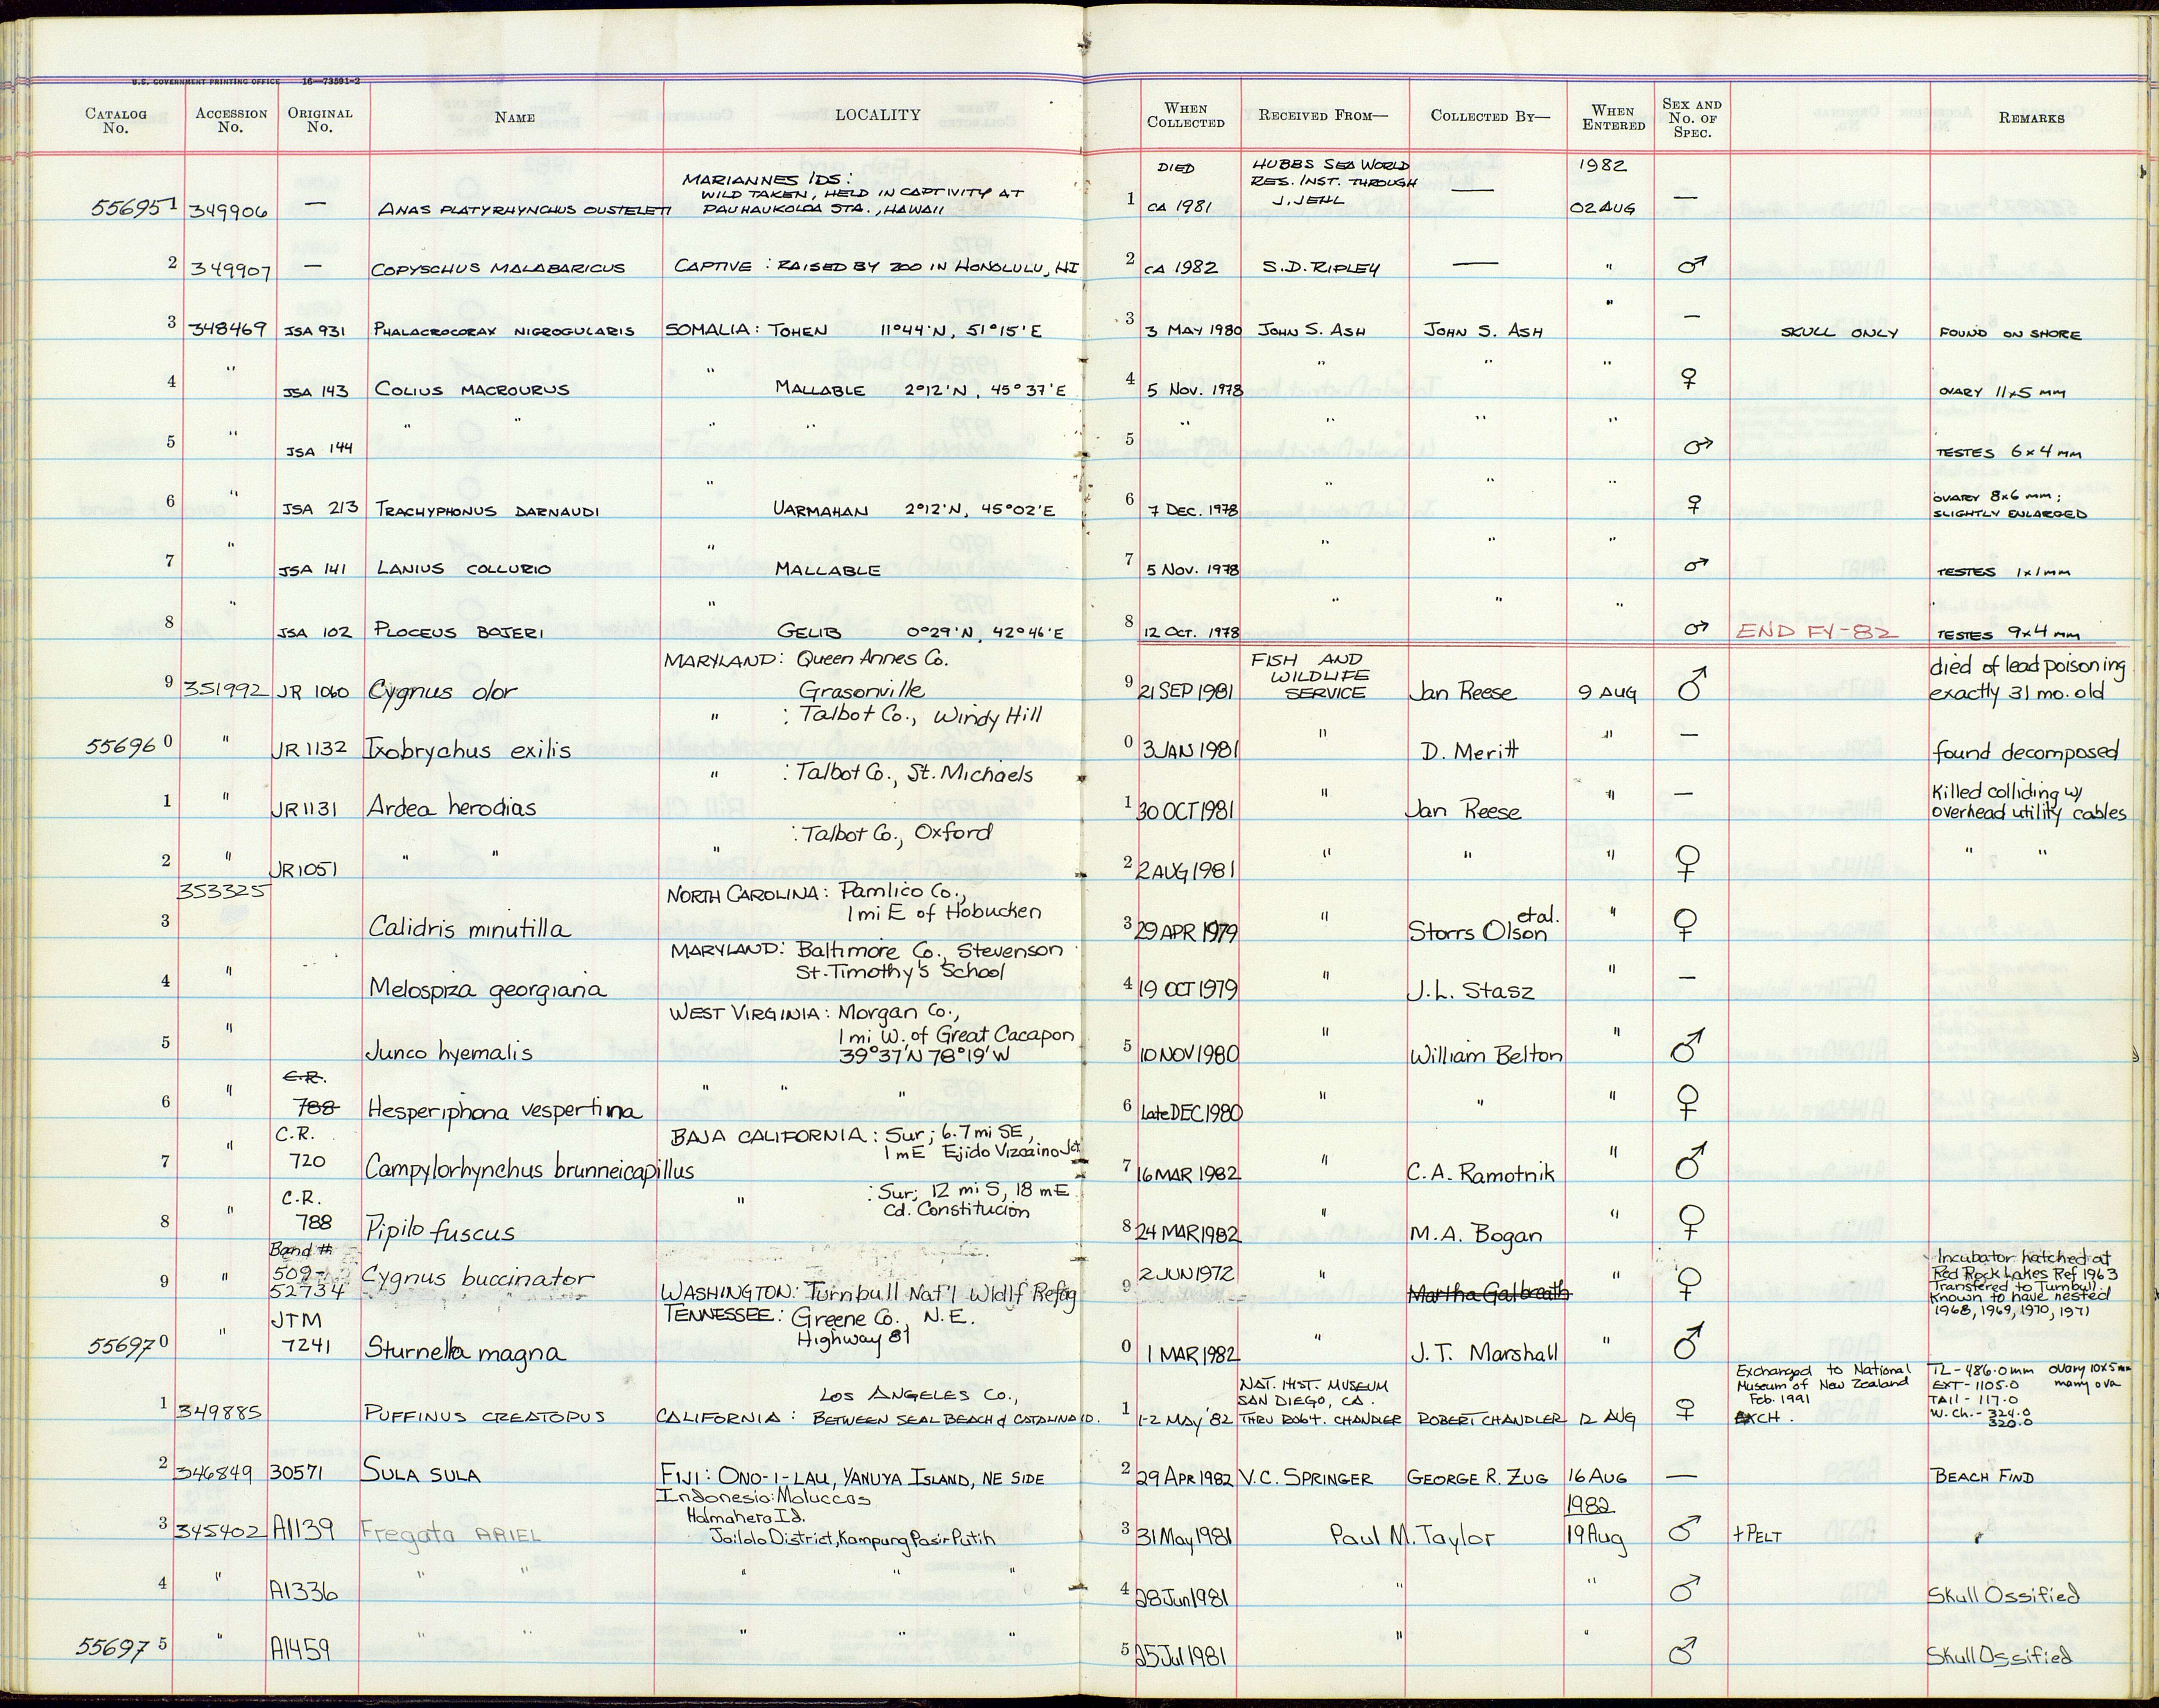 U.S. GOVERNMENT PRINTING OFFICE 16—73591-2
CATALOG No. ACCESSION No. ORIGINAL No. NAME LOCALITY WHEN COLLECTED RECEIVED FROM— COLLECTED BY— WHEN ENTERED SEX AND No. OF SPEC. REMARKS
MARIANNES IDS: DIED HUBBS SEA WORLD 1982
WILD TAKEN, HELD IN CAPTIVITY AT RES. INST. THROUGH
556951 349906 — ANAS PLATYRHYNCHUS OUSTELETI PAUHAUKOLOA STA., HAWAII 1 CA 1981 J. JEHL — 02 AUG —
2 349907 — COPYSCHUS MALABARICUS CAPTIVE : RAISED BY ZOO IN HONOLULU, HI 2 CA 1982 S.D. RIPLEY — " ♂
3 348469 JSA 931 PHALACROCORAX NIGROGULARIS SOMALIA: TOHEN 11°44'N, 51°15'E 3 3 MAY 1980 JOHN S. ASH JOHN S. ASH " — SKULL ONLY FOUND ON SHORE
4 " JSA 143 COLIUS MACROURUS " MALLABLE 2°12'N, 45°37'E 4 5 NOV. 1978 " " " ♀ OVARY 11x5 MM
5 " JSA 144 " " " " 5 " " " " ♂ TESTES 6x4 MM
6 " JSA 213 TRACHYPHONUS DARNAUDI " UARMAHAN 2°12'N, 45°02'E 6 7 DEC. 1978 " " " ♀ OVARY 8x6 MM;
SLIGHTLY ENLARGED
7 " JSA 141 LANIUS COLLURIO " MALLABLE 7 5 NOV. 1978 " " " ♂ TESTES 1x1MM
8 " JSA 102 PLOCEUS BOJERI " GELIB 0°29'N, 42°46'E 8 12 OCT. 1978 " " " ♂ END FY-82 TESTES 9x4 MM
MARYLAND: Queen Annes Co. FISH AND WILDLIFE died of lead poisoning
9 351992 JR 1060 Cygnus olor Grasonville 9 21 SEP 1981 SERVICE Jan Reese 9 AUG ♂ exactly 31 mo. old
" : Talbot Co., Windy Hill
556960 " JR 1132 Ixobrychus exilis 0 3 JAN 1981 " D. Meritt " — found decomposed
" : Talbot Co., St. Michaels Killed colliding w/
1 " JR1131 Ardea herodias 1 30 OCT 1981 " Jan Reese " — overhead utility cables
" : Talbot Co., Oxford
2 " JR1051 " " 2 2 AUG 1981 " " " ♀ " "
353325 NORTH CAROLINA: Pamlico Co.,
1 mi E of Hobucken et al.
3 Calidris minutilla 3 29 APR 1979 " Storrs Olson " ♀
MARYLAND: Baltimore Co., Stevenson
St. Timothy's School
4 " Melospiza georgiana 4 19 OCT 1979 " J.L. Stasz " —
WEST VIRGINIA: Morgan Co.,
1 mi W. of Great Cacapon
5 " Junco hyemalis 39°37'N 78°19'W 5 10 NOV 1980 " William Belton " ♂
C.R.
6 " 788 Hesperiphona vespertina " " " 6 Late DEC 1980 " " " ♀
C.R. BAJA CALIFORNIA: Sur; 6.7 mi SE,
1 mE Ejido Vizcaino Jct
7 " 720 Campylorhynchus brunneicapillus 7 16 MAR 1982 " C.A. Ramotnik " ♂
C.R. " : Sur; 12 mi S, 18 mE
8 " 788 Pipilo fuscus Cd. Constitucion 8 24 MAR 1982 " M.A. Bogan " ♀
Band # Incubator hatched at
509- Red Rock Lakes Ref 1963
9 " 52734 Cygnus buccinator WASHINGTON: Turnbull Nat'l Wldlf Refag 9 2 JUN 1972 " Martha Galbreath " ♀ Transfered to Turnbull.
Known to have nested
1968, 1969, 1970, 1971
JTM TENNESSEE: Greene Co., N.E.
Highway 81
556970 " 7241 Sturnella magna 0 1 MAR 1982 " J.T. Marshall " ♂
LOS ANGELES CO., NAT. HIST. MUSEUM Exchanged to National TL - 486.0mm ovary 10x5mm
SAN DIEGO, CA. Museum of New Zealand EXT - 1105.0 many ova
Feb. 1991 TAIL - 117.0
1 349885 PUFFINUS CREATOPUS CALIFORNIA : BETWEEN SEAL BEACH & CATALINA ID. 1 1-2 MAY '82 THRU ROBT. CHANDLER ROBERT CHANDLER 12 AUG ♀ EXCH. W. Ch. - 324.0
320.0
2 346849 30571 SULA SULA FIJI: ONO-I-LAU, YANUYA ISLAND, NE SIDE 2 29 APR 1982 V.C. SPRINGER GEORGE R. ZUG 16 AUG — BEACH FIND
Indonesia: Moluccas 1982
Halmahera Id.
3 345402 A1139 Fregata ARIEL Jailolo District, Kampung Pasir Putih 3 31 May 1981 Paul M. Taylor 19 Aug ♂ + PELT
4 " A1336 " " " " " 4 28 Jun 1981 " " ♂ Skull Ossified
556975 " A1459 " " " " " 5 25 Jul 1981 " " ♂ Skull Ossified